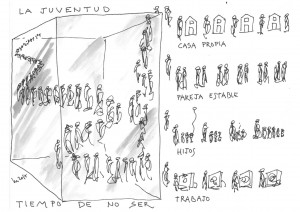 LA JUVENTUD
CASA PROPIA
PAREJA ESTABLE
HIJOS
TRABAJO
TIEMPO DE NO SER